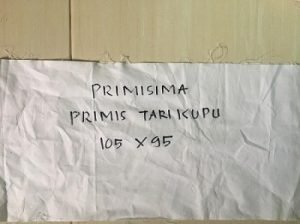 PRIMISIMA
PRIMIS TARI KUPU
105 X 95